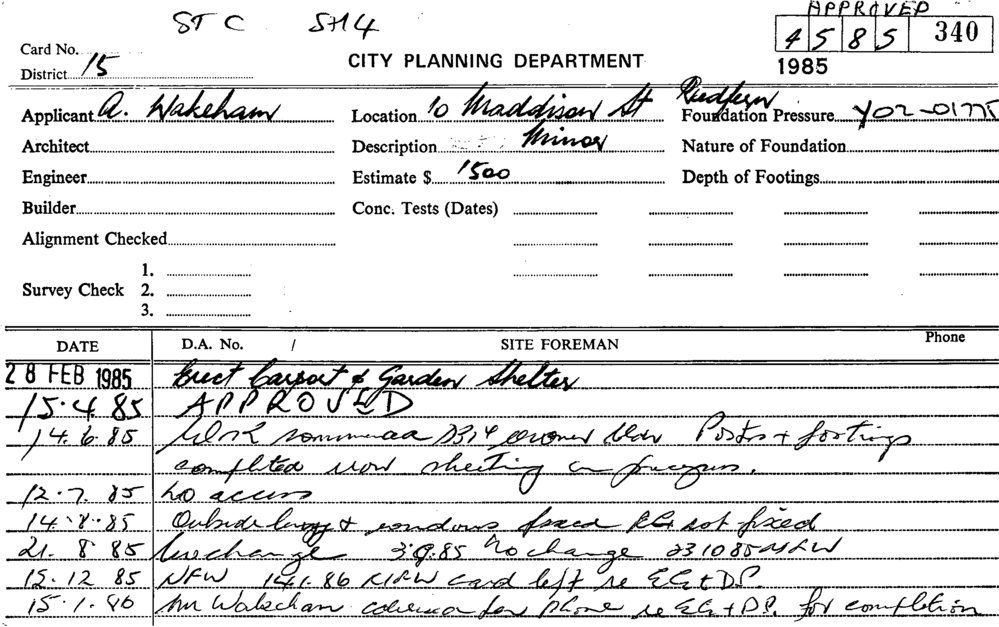 STC SH4
APPROVED
4 5 8 5 340
1985
Card No.
District 15
CITY PLANNING DEPARTMENT
Applicant A. Wakeham
Location 10 Maddison St Redfern
Foundation Pressure Y02-01775
Architect
Description Minor
Nature of Foundation
Engineer
Estimate $ 1500
Depth of Footings
Builder
Conc. Tests (Dates)
Alignment Checked
Survey Check 1. 2. 3.
DATE D.A. No. / SITE FOREMAN Phone
28 FEB 1985 Erect Carport & Garden Shelter
15.4.85 APPROVED
14.6.85 Work owner bldr Posts + footings
completed now sheeting in progress.
12.7.85 No access
14.8.85 Outside & windows fixed not fixed
21 8 85 No change 3.9.85 No change 231085 NFW
15.12 85 NFW 14.1.86 card left re EG + DP.
15.1.86 Mr Wakeham phone re EG + DP. for completion